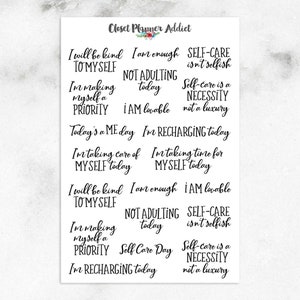 Closet Planner Addict
I will be kind
TO MYSELF
I am enough
SELF-CARE
isn't selfish
NOT ADULTING
today
I'm making
myself a
PRIORITY
Self-care is a
NECESSITY
not a luxury
i AM lovable
Today's a ME day
I'm RECHARGING today
I'm taking care of
MYSELF today
I'm taking time for
MYSELF today
I will be kind
TO MYSELF
I am enough
i AM lovable
NOT ADULTING
today
SELF-CARE
isn't selfish
I'm making
myself a
PRIORITY
Self Care Day
Self-care is a
NECESSITY
not a luxury
I'm RECHARGING today